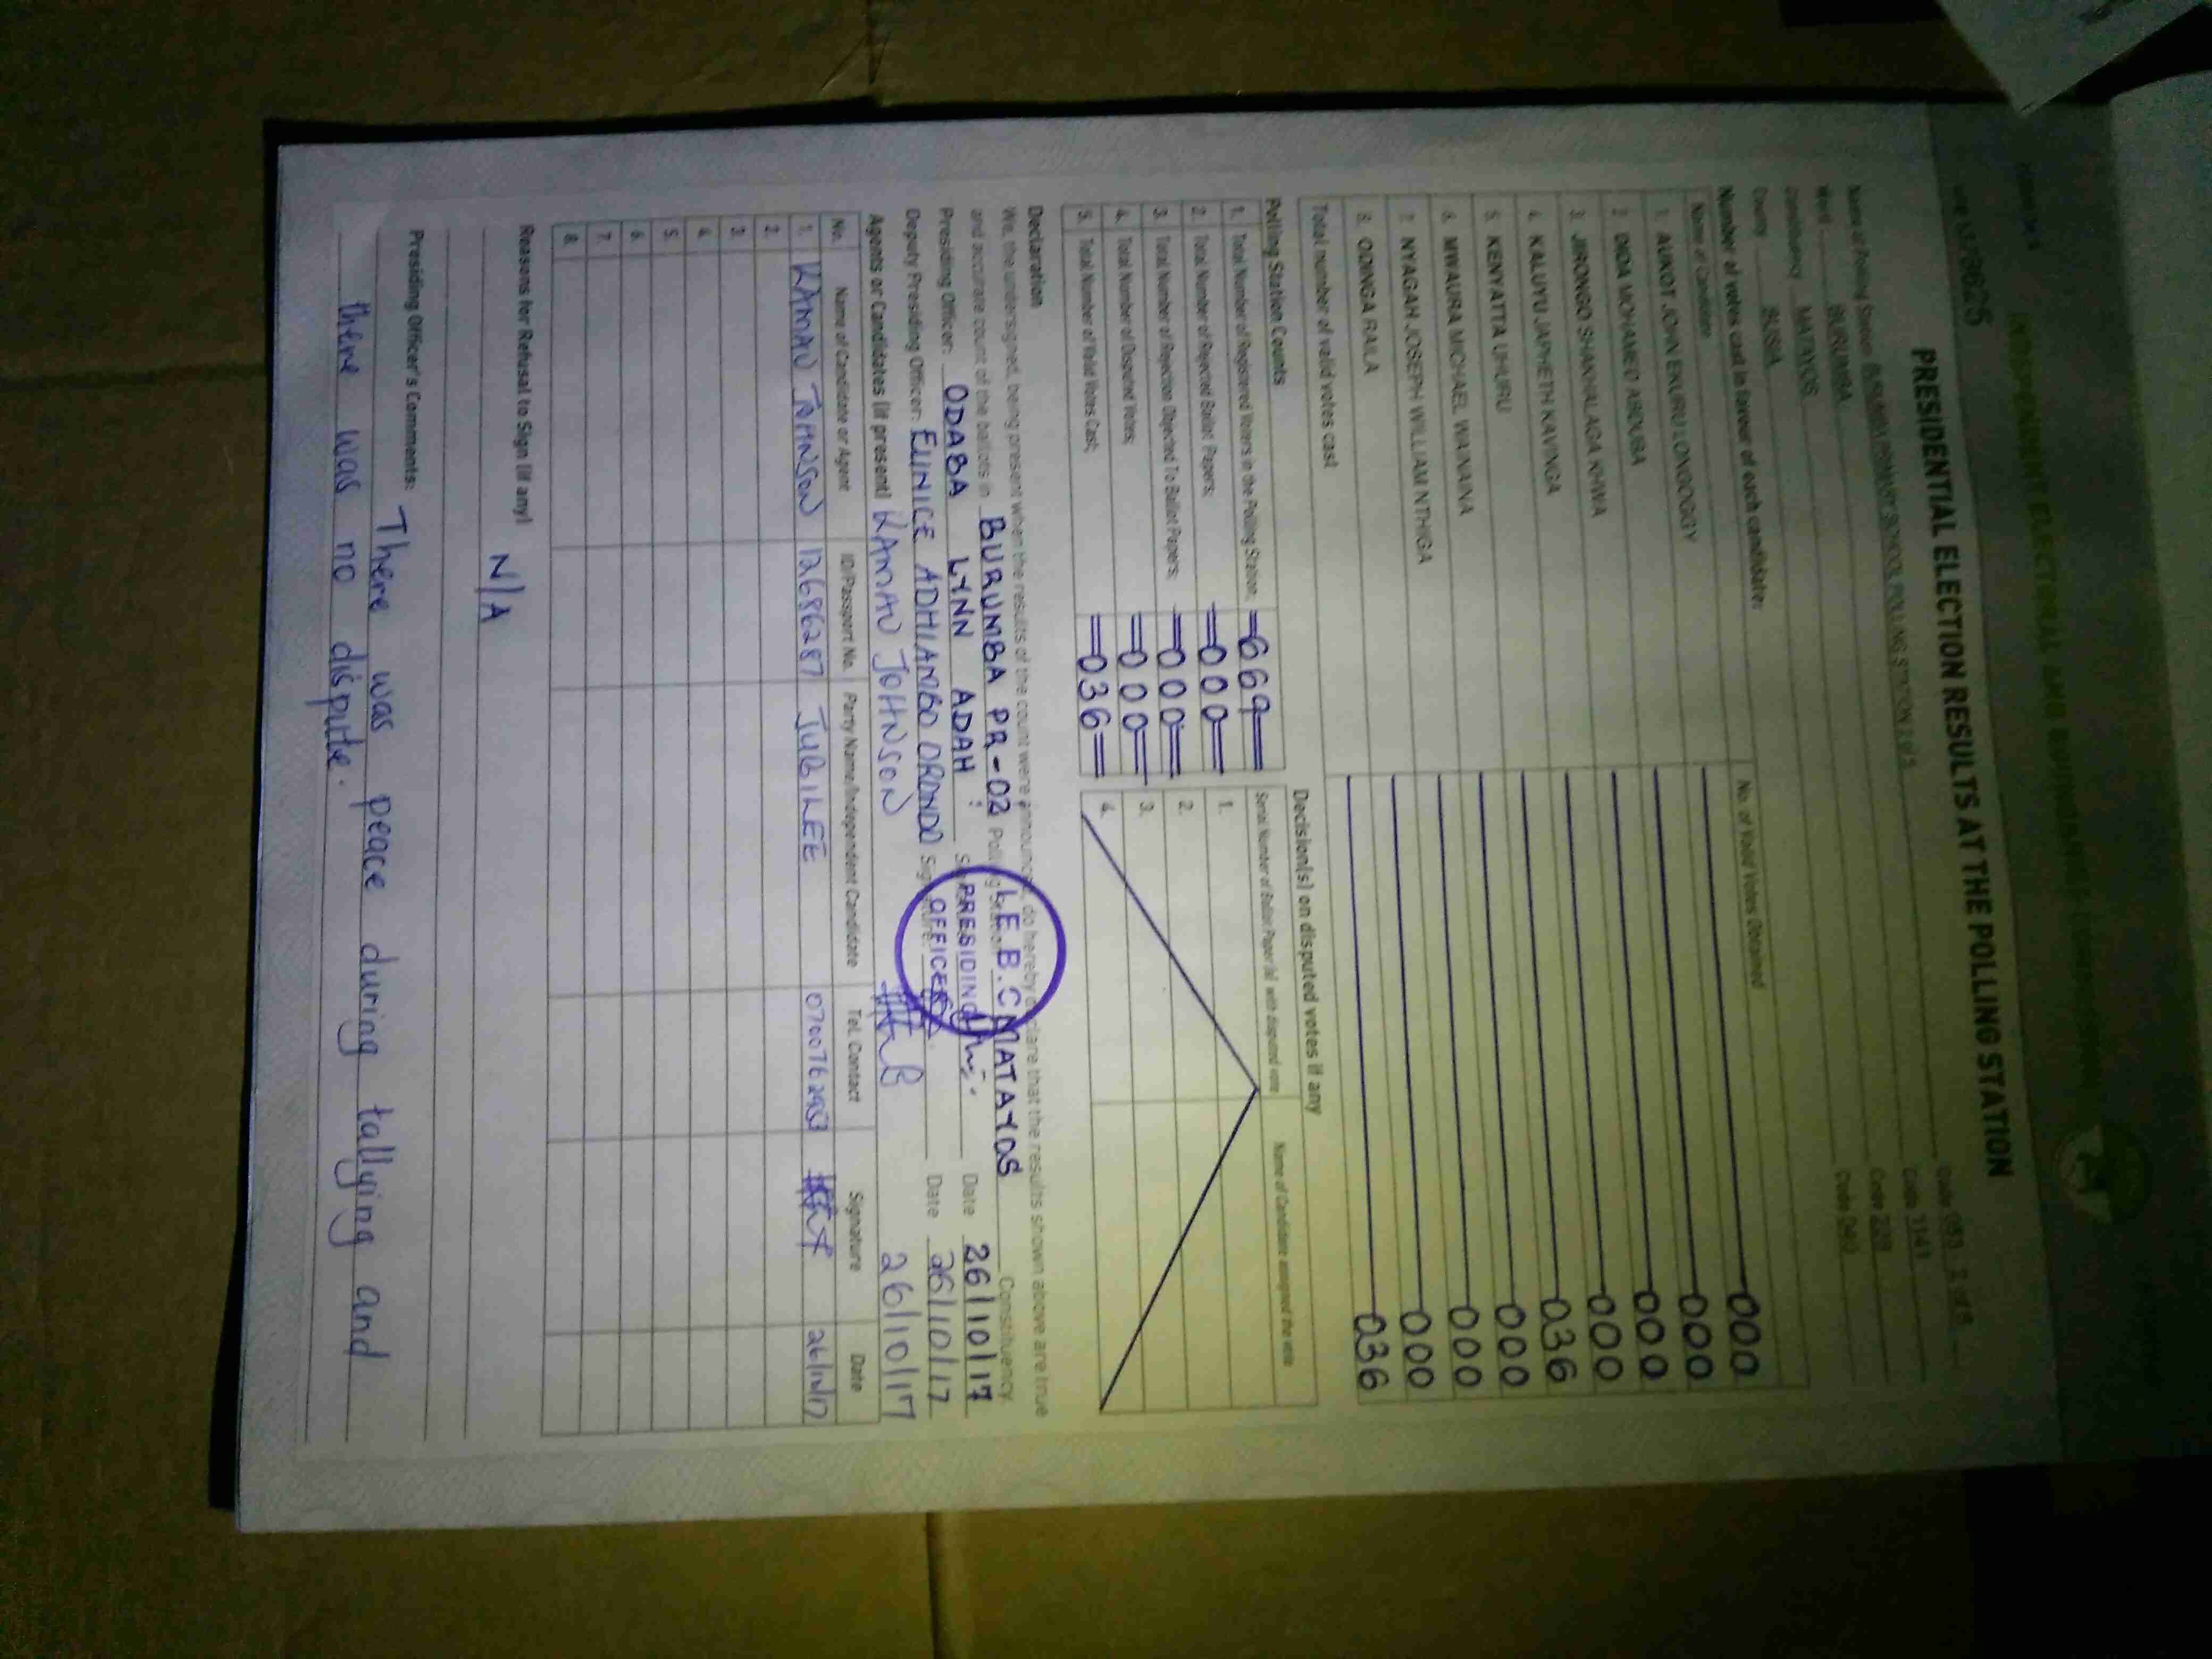 INDEPENDENT ELECTORAL AND BOUNDARIES COMMISSION
PRESIDENTIAL ELECTION RESULTS AT THE POLLING STATION
Name of Polling Station PRIMARY SCHOOL POLLING STATION 2 of 5 Code 2 of 5
Ward BURUMBA Code 1141
Constituency MATAYOS Code
County BUSIA Code 040
Number of votes cast in favour of each candidate:
Name of Candidate No. of Valid Votes Obtained
1. AUKOT JOHN EKURU LONGOGGY 000
2. DIDA MOHAMED ABDUBA 000
3. JIRONGO SHAKHALAGA KHWA 000
4. KALUYU JAPHETH KAVINGA 000
5. KENYATTA UHURU 036
6. MWAURA MICHAEL WAINAINA 000
7. NYAGAH JOSEPH WILLIAM NTHIGA 000
8. ODINGA RAILA 000
Total number of valid votes cast 036
Polling Station Counts
1. Total Number of Registered Voters in the Polling Station; 669
2. Total Number of Rejected Ballot Papers; 000
3. Total Number of Rejection Objected To Ballot Papers; 000
4. Total Number of Disputed Votes; 000
5. Total Number of Valid Votes Cast; 036
Decision(s) on disputed votes if any
Serial Number of Ballot Paper (s) with disputed vote Name of Candidate assigned the vote
1.
2.
3.
4.
Declaration
We, the undersigned, being present when the results of the count were announced, do hereby declare that the results shown above are true
and accurate count of the ballots in BURUMBA PR-02 Polling Station MATAYOS Constituency
Presiding Officer: ODABA LYNN ADAH Date 26/10/17
Deputy Presiding Officer: EUNICE ADHIAMBO ORONDO Signature: Date 26/10/17
I.E.B.C
PRESIDING
OFFICER
Agents or Candidates (if present) KAMAU JOHNSON 26/10/17
No. Name of Candidate or Agent ID/Passport No. Party Name/Independent Candidate Tel. Contact Signature Date
1. KAMAU JOHNSON 12686287 JUBILEE 26/10/17
2.
3.
4.
5.
6.
7.
8.
Reasons for Refusal to Sign (if any)
N/A
Presiding Officer's Comments: There was peace during tallying and
there was no dispute.